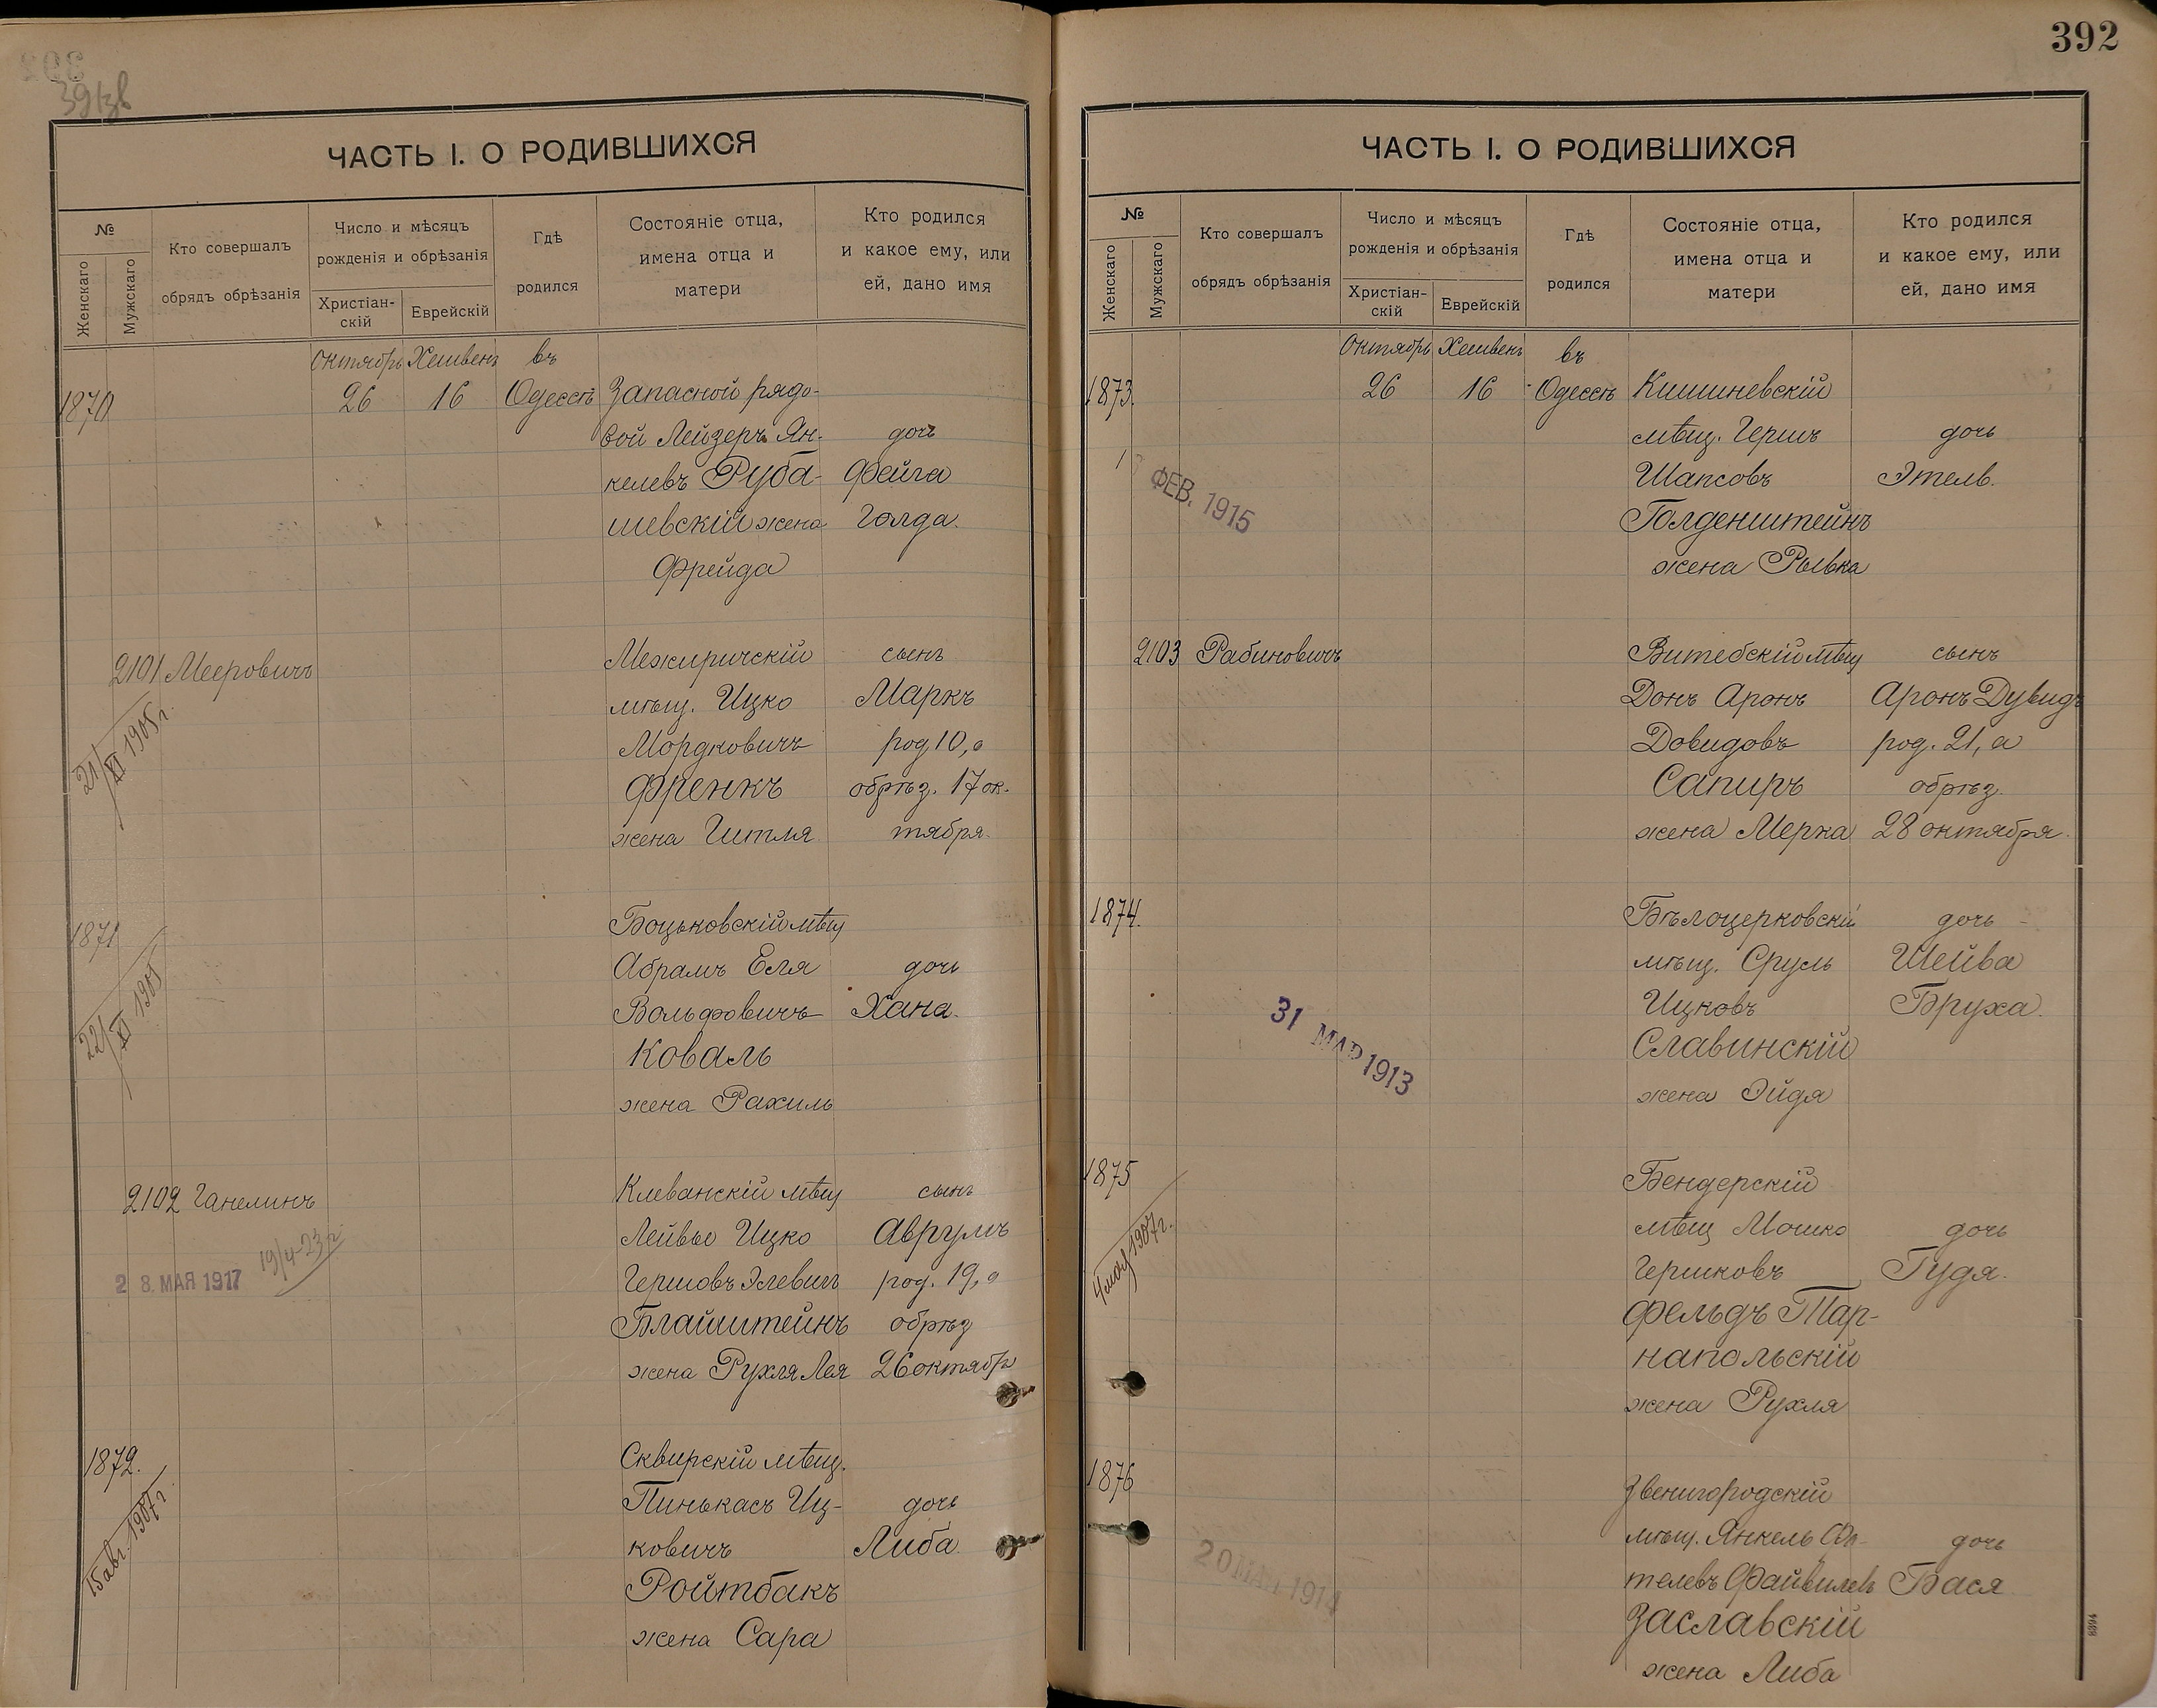 392
ЧАСТЬ I. О РОДИВШИХСЯ
№
Женскаго
Мужскаго
Кто совершалъ
обрядъ обрѣзанія
Число и мѣсяцъ
рожденія и обрѣзанія
Христіан-
скій
Еврейскій
Гдѣ
родился
Состояніе отца,
имена отца и
матери
Кто родился
и какое ему, или
ей, дано имя
Октябрь Хешвенъ въ
1870 26 16 Одессѣ Запасной рядо-
вой Лейзеръ Ян- дочь
келевъ Руба- Фейга
шевскій жена Голда.
Фрейда
2101 Мееровичъ Межиричскій сынъ
мѣщ. Ицко Маркъ
Мордковичъ род 10, а
Френкъ обрѣз. 17 ок-
жена Гитля тября.
21/XI 1905 г.
1871 Боцьковскій мѣщ
Абрамъ Еля дочь
Вольфовичъ Хана.
Коваль
жена Рахиль
22/XI 1905
2102 Ганелинъ Клеванскій мѣщ сынъ
Лейвье Ицко Аврумъ
Гершовъ Элевичъ род. 19, а
Блайштейнъ обрѣз
жена Рухля Лея 26 октябр
28. МАЯ 1917
19/4-23 г
1872. Сквирскій мѣщ.
Пинькасъ Иц- дочь
ковичъ Либа.
Ройтбакъ
жена Сара
15 авг. 1907 г.
ЧАСТЬ I. О РОДИВШИХСЯ
№
Женскаго
Мужскаго
Кто совершалъ
обрядъ обрѣзанія
Число и мѣсяцъ
рожденія и обрѣзанія
Христіан-
скій
Еврейскій
Гдѣ
родился
Состояніе отца,
имена отца и
матери
Кто родился
и какое ему, или
ей, дано имя
Октябрь Хешвенъ въ
1873. 26 16 Одессѣ Кишиневскій
мѣщ. Гершъ дочь
Шапсовъ Этель.
Голденштейнъ
жена Рывка
ФЕВ. 1915
2103 Рабиновичъ Витебскій мѣщ сынъ
Донъ Аронъ Аронъ Дувидъ
Довидовъ род. 21, а
Сапиръ обрѣз
жена Мерка 28 октября.
1874. Бѣлоцерковскій дочь
мѣщ. Сруль Шейва
Ицковъ Бруха.
Славинскій
жена Эйдя
31 МАР 1913
1875 Бендерскій
мѣщ Мошко дочь
Гершковъ Гудя.
Фельдъ Тар-
напольскій
жена Рухля
4 мая 1907 г.
1876 Звенигородскій
мѣщ. Янкель дочь
телевъ Файвилевъ Бася
Заславскій
жена Либа
20 1914